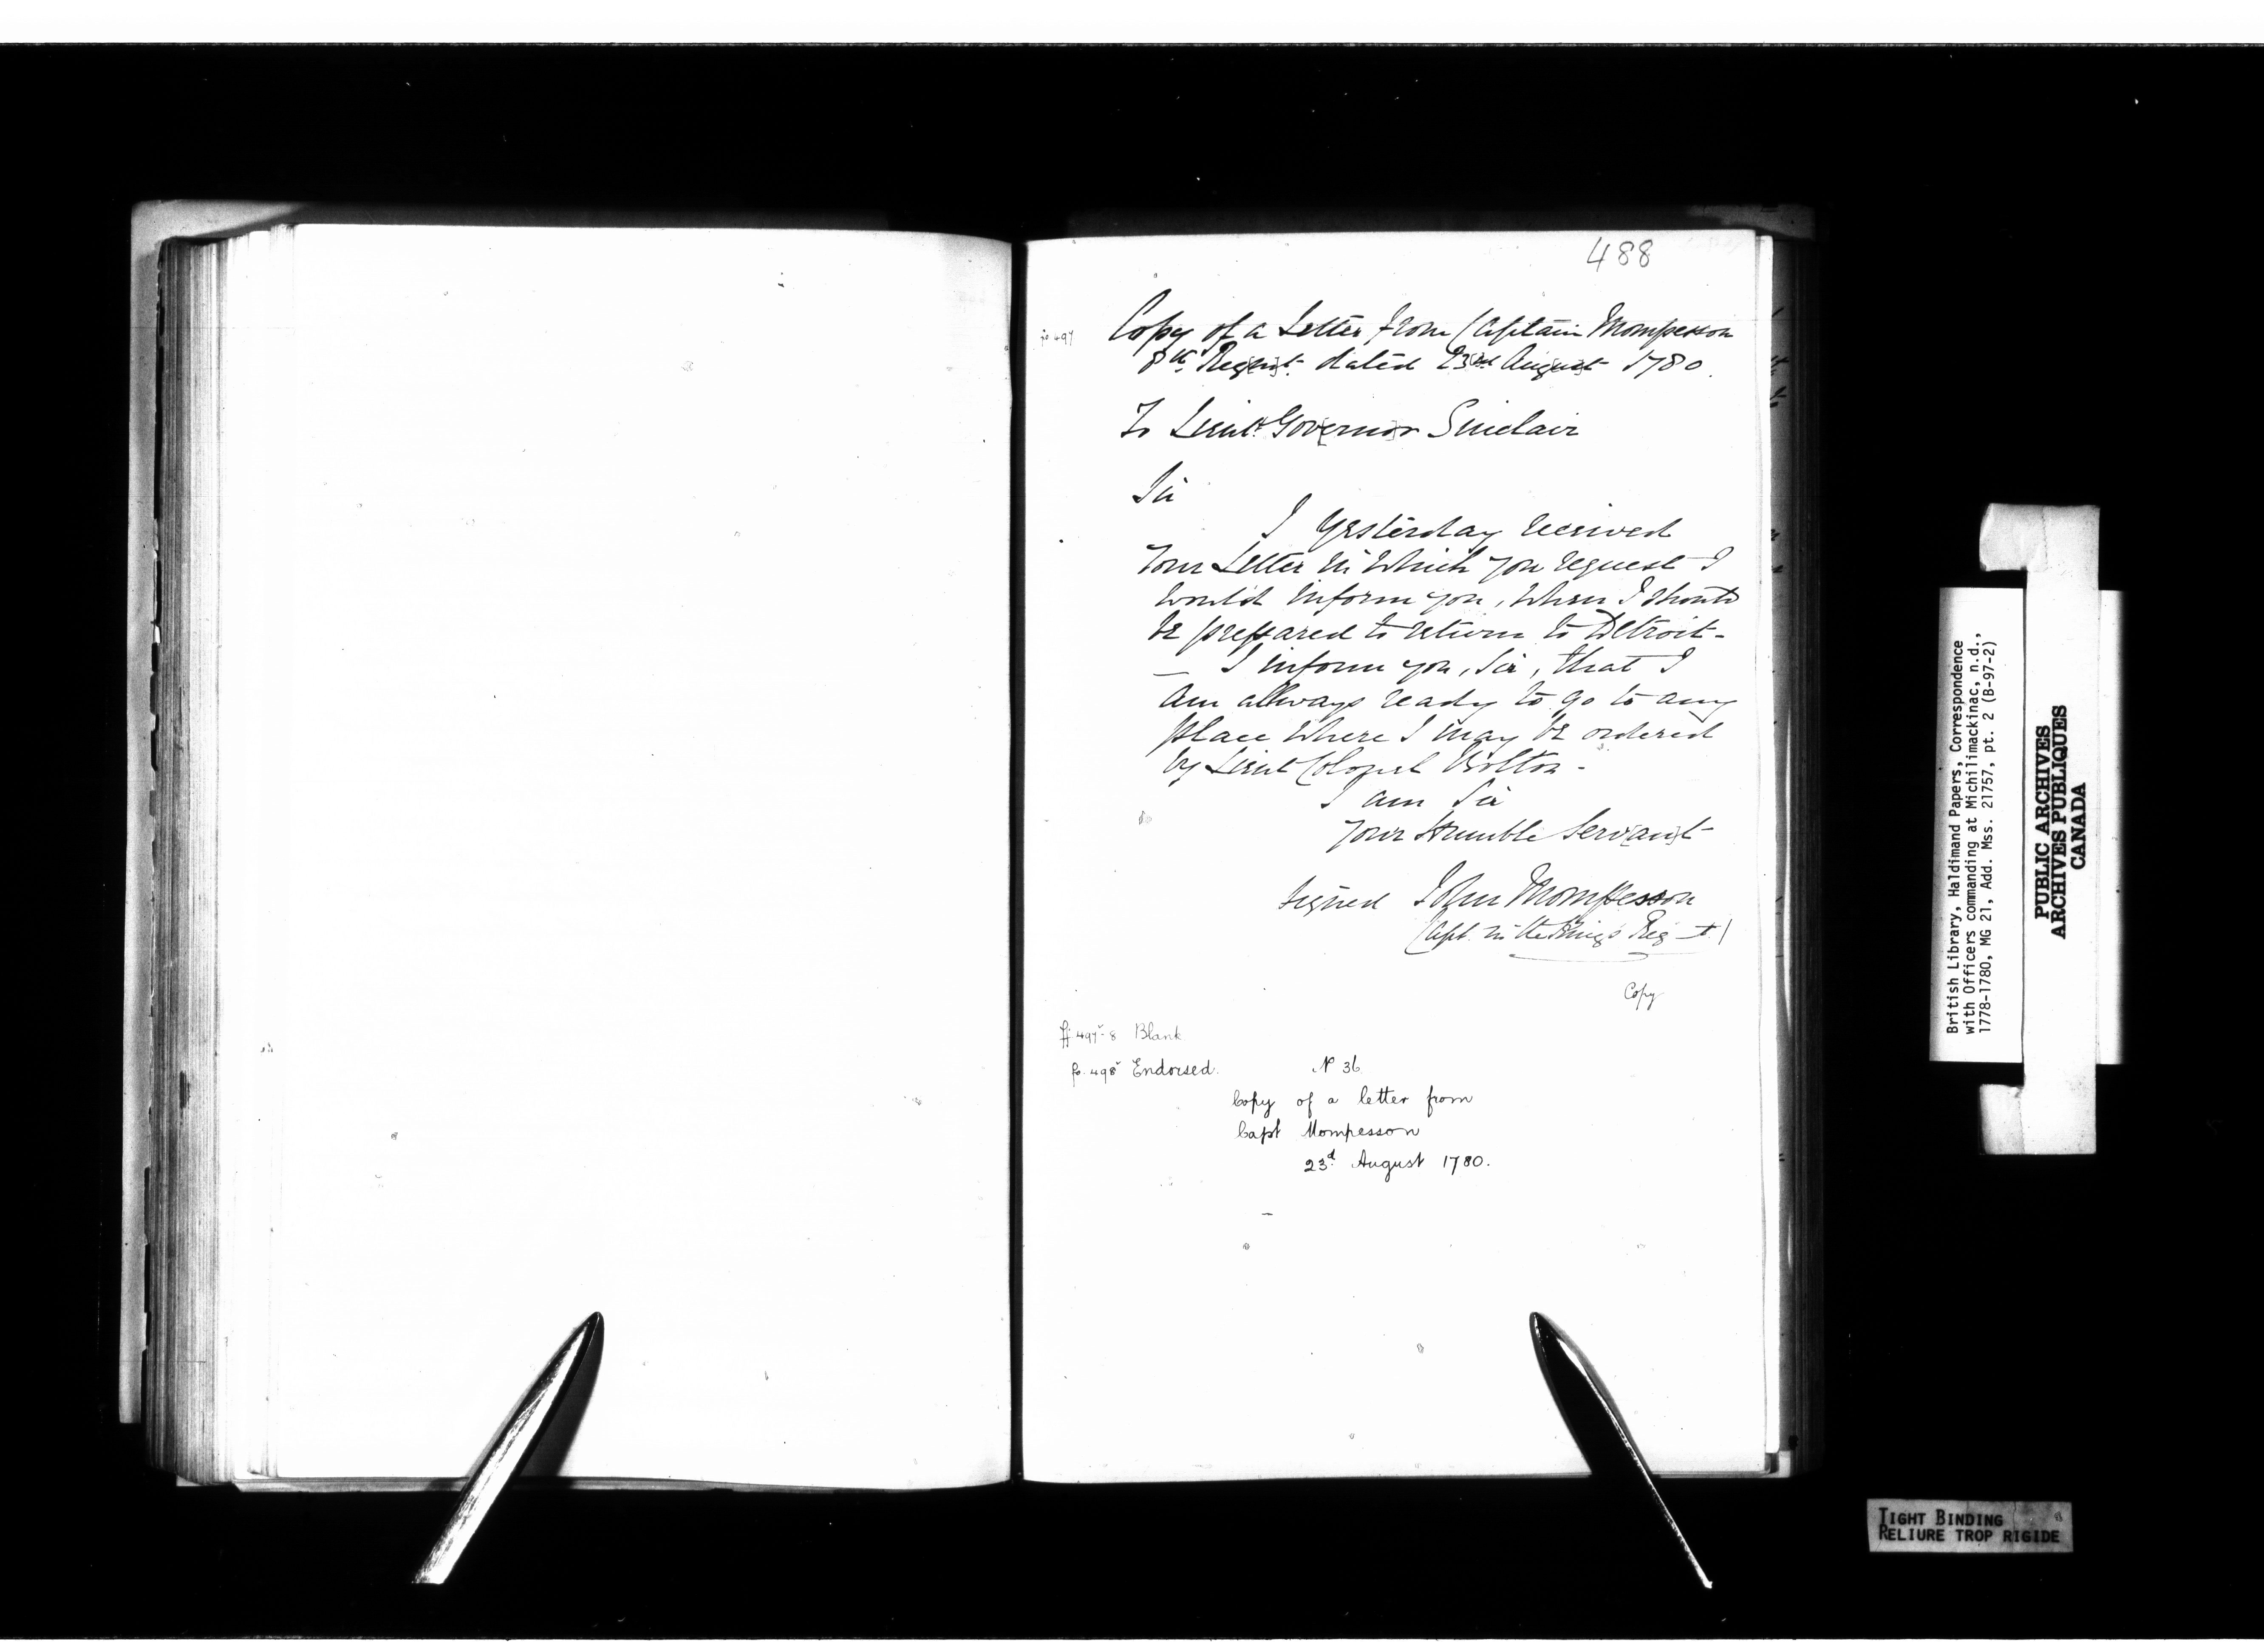 488
fo 497
Copy of a Letter from Captain Mompesson
8th Reg[imen]t dated 23rd Aug[us]t 1780.
To Lieut Gov[erno]r Sinclair
Sir
I yesterday received
your Letter in which you request I
would inform you, when I should
be prepared to return to Detroit -
— I inform you, Sir, that I
am allways ready to go to any
place where I may be ordered
by Lieut Colonel Bolton -
I am Sir
your Humble Serv[an]t
Signed John Mompesson
Capt. in the King's Reg-t
Copy
ff 497v-8 Blank
fo. 498v Endorsed. No 36
Copy of a letter from
Capt Mompesson
23d August 1780.
British Library, Haldimand Papers, Correspondence
with Officers commanding at Michilimackinac, n.d.,
1778-1780, MG 21, Add. Mss. 21757, pt. 2 (B-97-2)
PUBLIC ARCHIVES
ARCHIVES PUBLIQUES
CANADA
TIGHT BINDING
RELIURE TROP RIGIDE